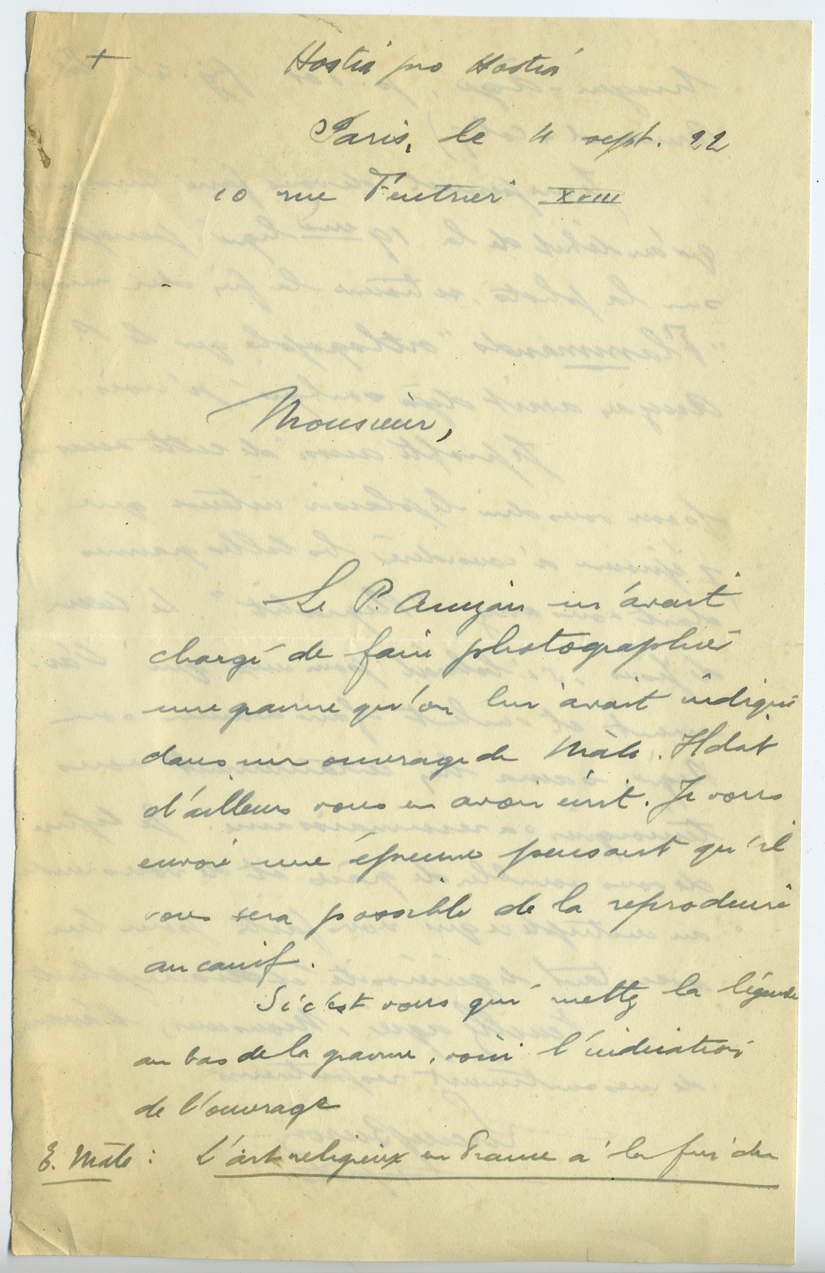 + Hostia pro Hostiâ
Paris, le 4 sept. 22
10 rue Feutrier XVIII
Monsieur,
Le P. Anizan m'avait
chargé de faire photographier
une gravure qu'on lui avait indiqué
dans un ouvrage de Mâle. Il doit
d'ailleurs vous en avoir écrit. Je vous
envoie une épreuve pensant qu'il
vous sera possible de la reproduire
au canif.
Si c'est vous qui mettez la légende
au bas de la gravure, voici l'indication
de l'ouvrage
E. Mâle : L'art religieux en France à la fin du